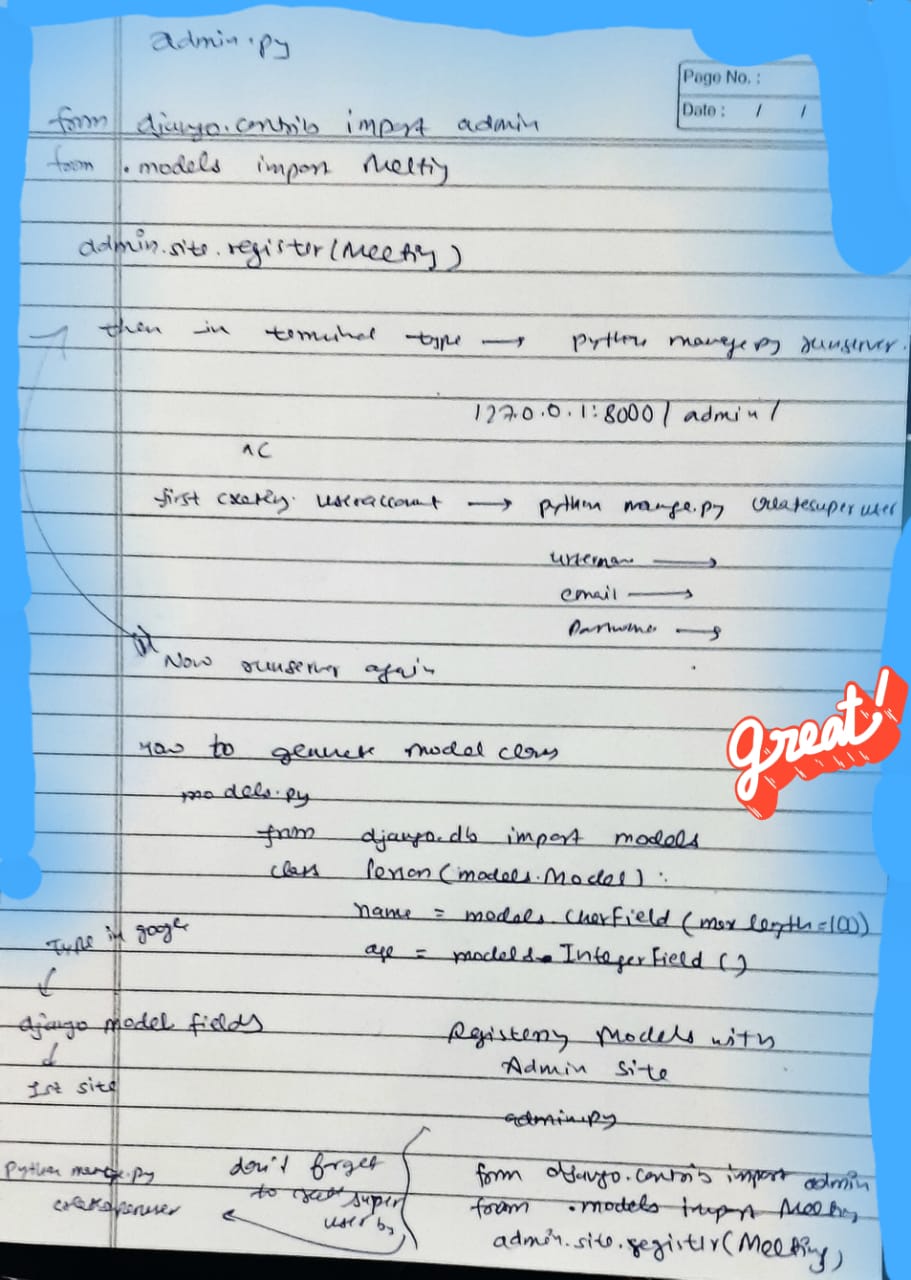 admin.py
Page No. :
Date : / /
form django.contrib import admin
from .models import Meeting
admin.site.register(Meeting)
then in terminal type → python manage.py runserver.
127.0.0.1:8000/admin/
^C
first useraccount → python manage.py createsuperuser
username →
email →
Password →
Now runserver again
How to generate model class
models.py
from django.db import models
class Person(models.Model):
name = models.CharField(max length=100)
age = models.IntegerField()
great!
Type in google
↓
django model fields
↓
1st site
Registering Models with
Admin site
admin.py
form django.contrib import admin
from .models import Meeting
admin.site.register(Meeting)
don't forget
to super
user by
python manage.py
createsuperuser